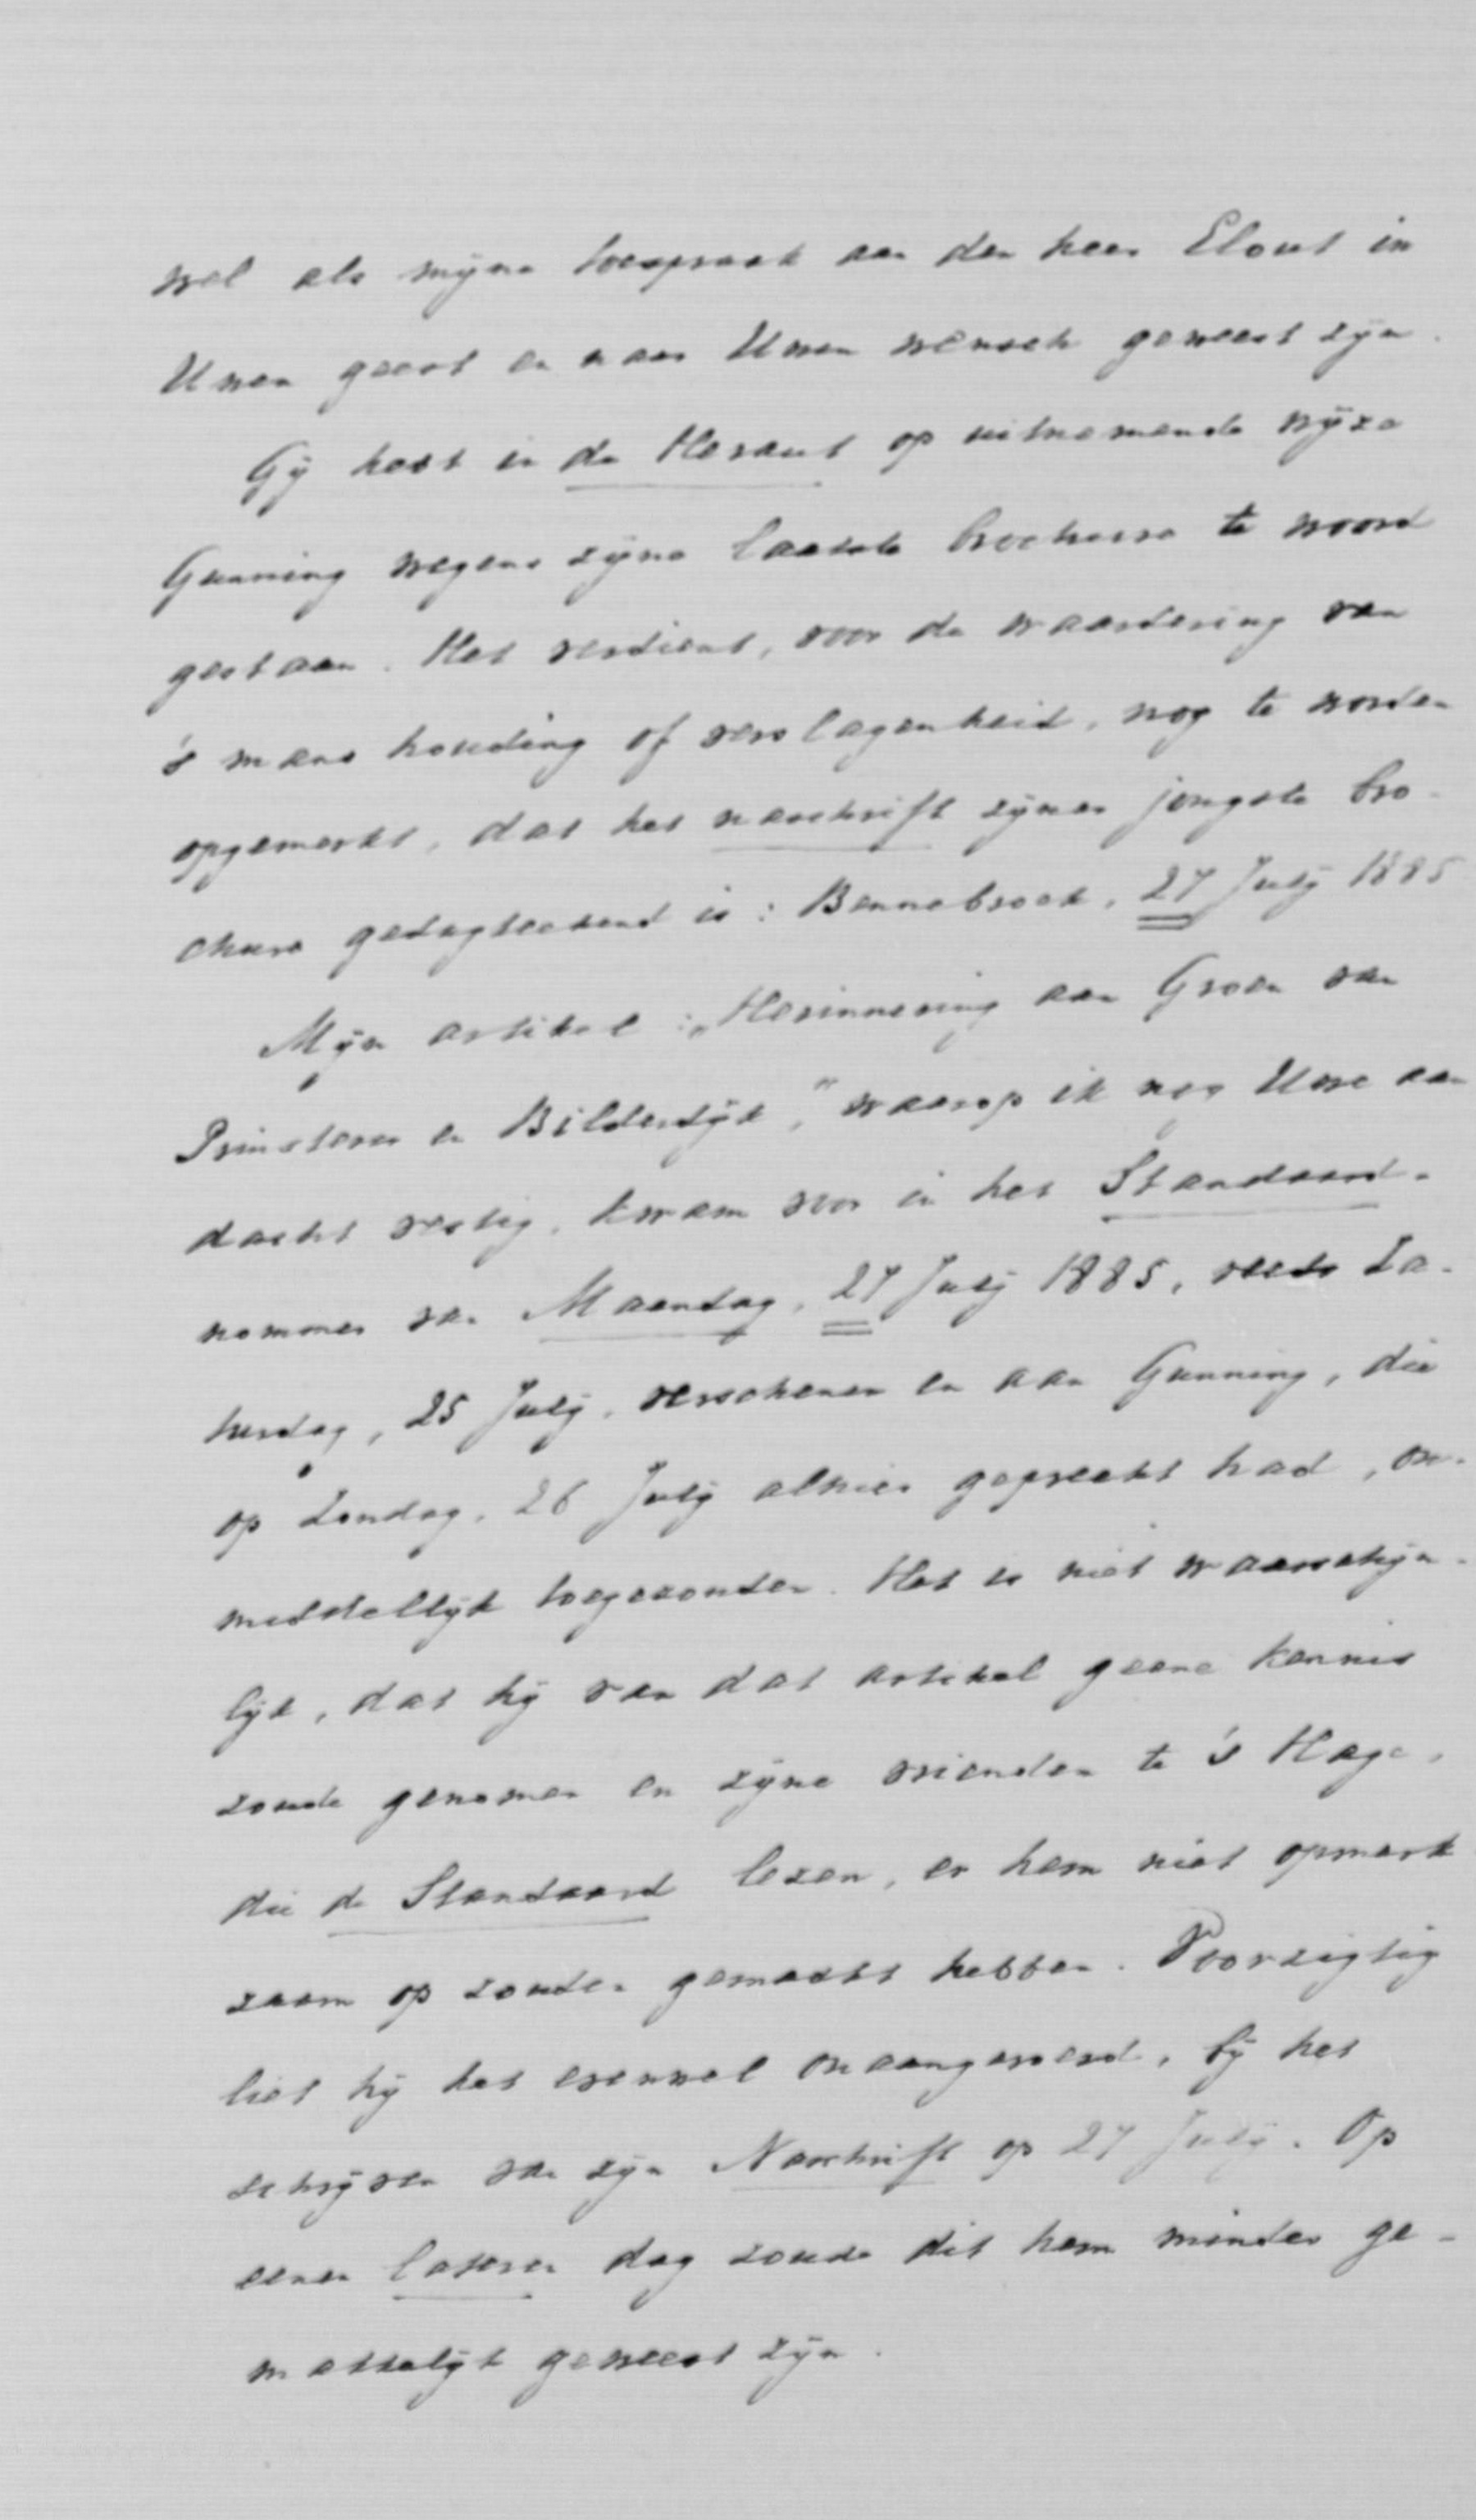 wel als mijne toespraak aan den heer Elout in
Uwen geest en naar Uwen wensch geweest zijn.
Gij hebt in de Heraut op uitnemende wijze
Gunning wegens zijne laatste brochure te woord
gestaan. Het verdient, voor de waardering van
's mans houding of verslagenheid, nog te worden
opgemerkt, dat het naschrift zijner jongste bro-
chure gedagteekend is: Bennebroek, 27 Julij 1885
Mijn artikel: „Herinnering aan Groen van
Prinsterer en Bilderdijk," waarop ik nog Uwe aan
dacht vestig, kwam voor in het Standaard-
nommer van Maandag, 27 Julij 1885, reeds Za-
turdag, 25 Julij, verschenen en aan Gunning, die
op Zondag, 26 Julij alhier gepreekt had, on-
middellijk toegezonden. Het is niet waarschijn-
lijk, dat hij van dat artikel geene kennis
zoude genomen en zijne vrienden te 's Hage,
die de Standaard lezen, er hem niet opmerk
zaam op zouden gemaakt hebben. Voorzigtig
liet hij het evenwel onaangeroerd, bij het
schrijven van zijn Naschrift op 27 Julij. Op
eenen lateren dag zoude dit hem minder ge-
makkelijk geweest zijn.